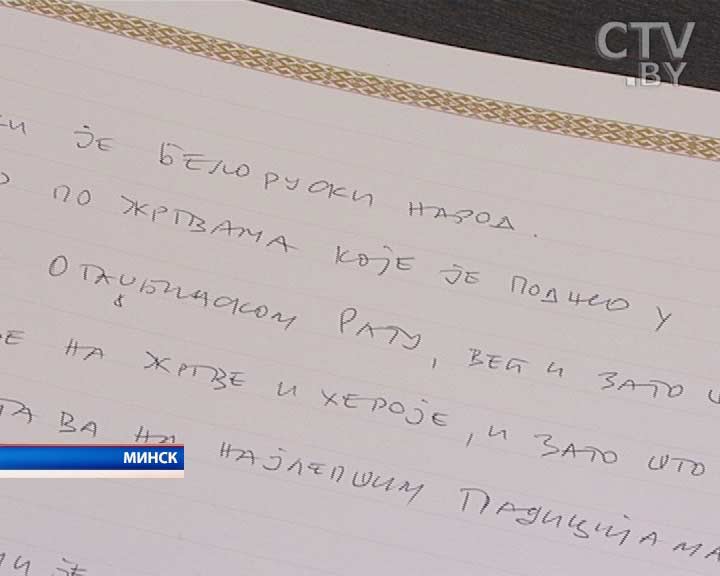 CTV
.BY
је БЕЛОРУСКИ НАРОД.
ПО ЖРТВАМА КОЈЕ ЈЕ ПОДНЕО У
ОТАЏБИНСКОМ РАТУ, ВЕЋ И ЗАТО
НА ЖРТВЕ И ХЕРОЈЕ, И ЗАТО ШТО
НА НАЈЛЕПШИМ ТРАДИЦИЈАМА
МИНСК
ЈЕ